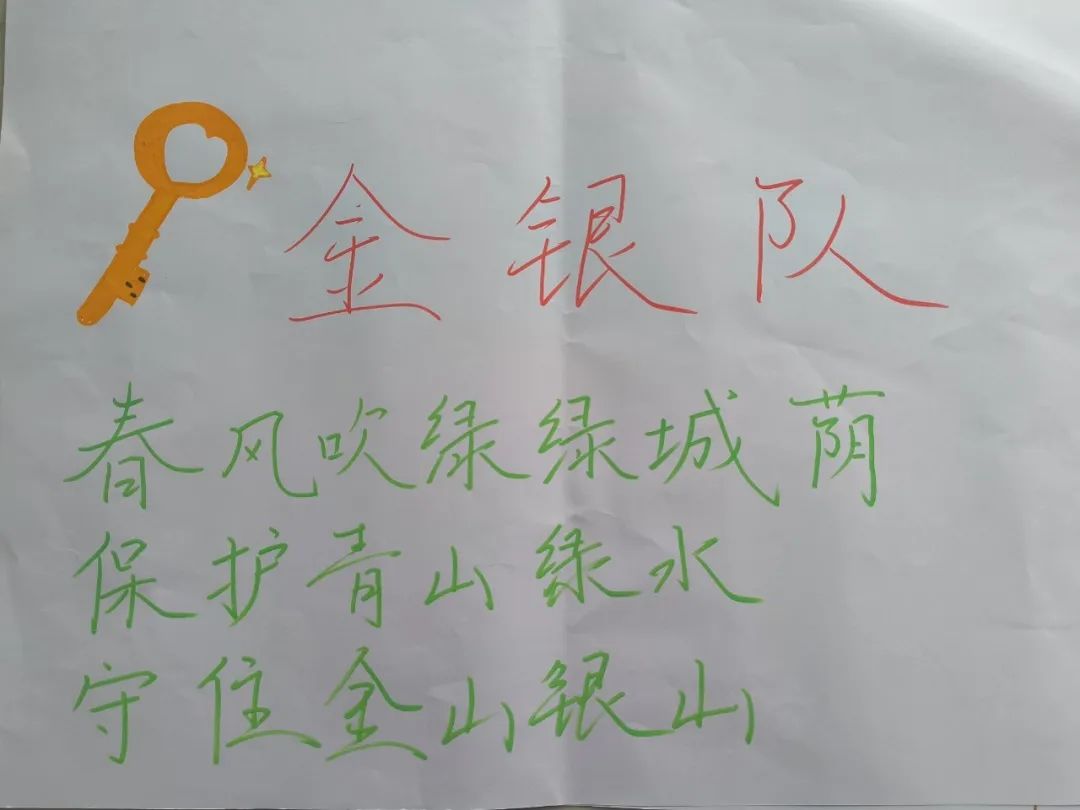 金银队
春风吹绿绿城荫
保护青山绿水
守住金山银山